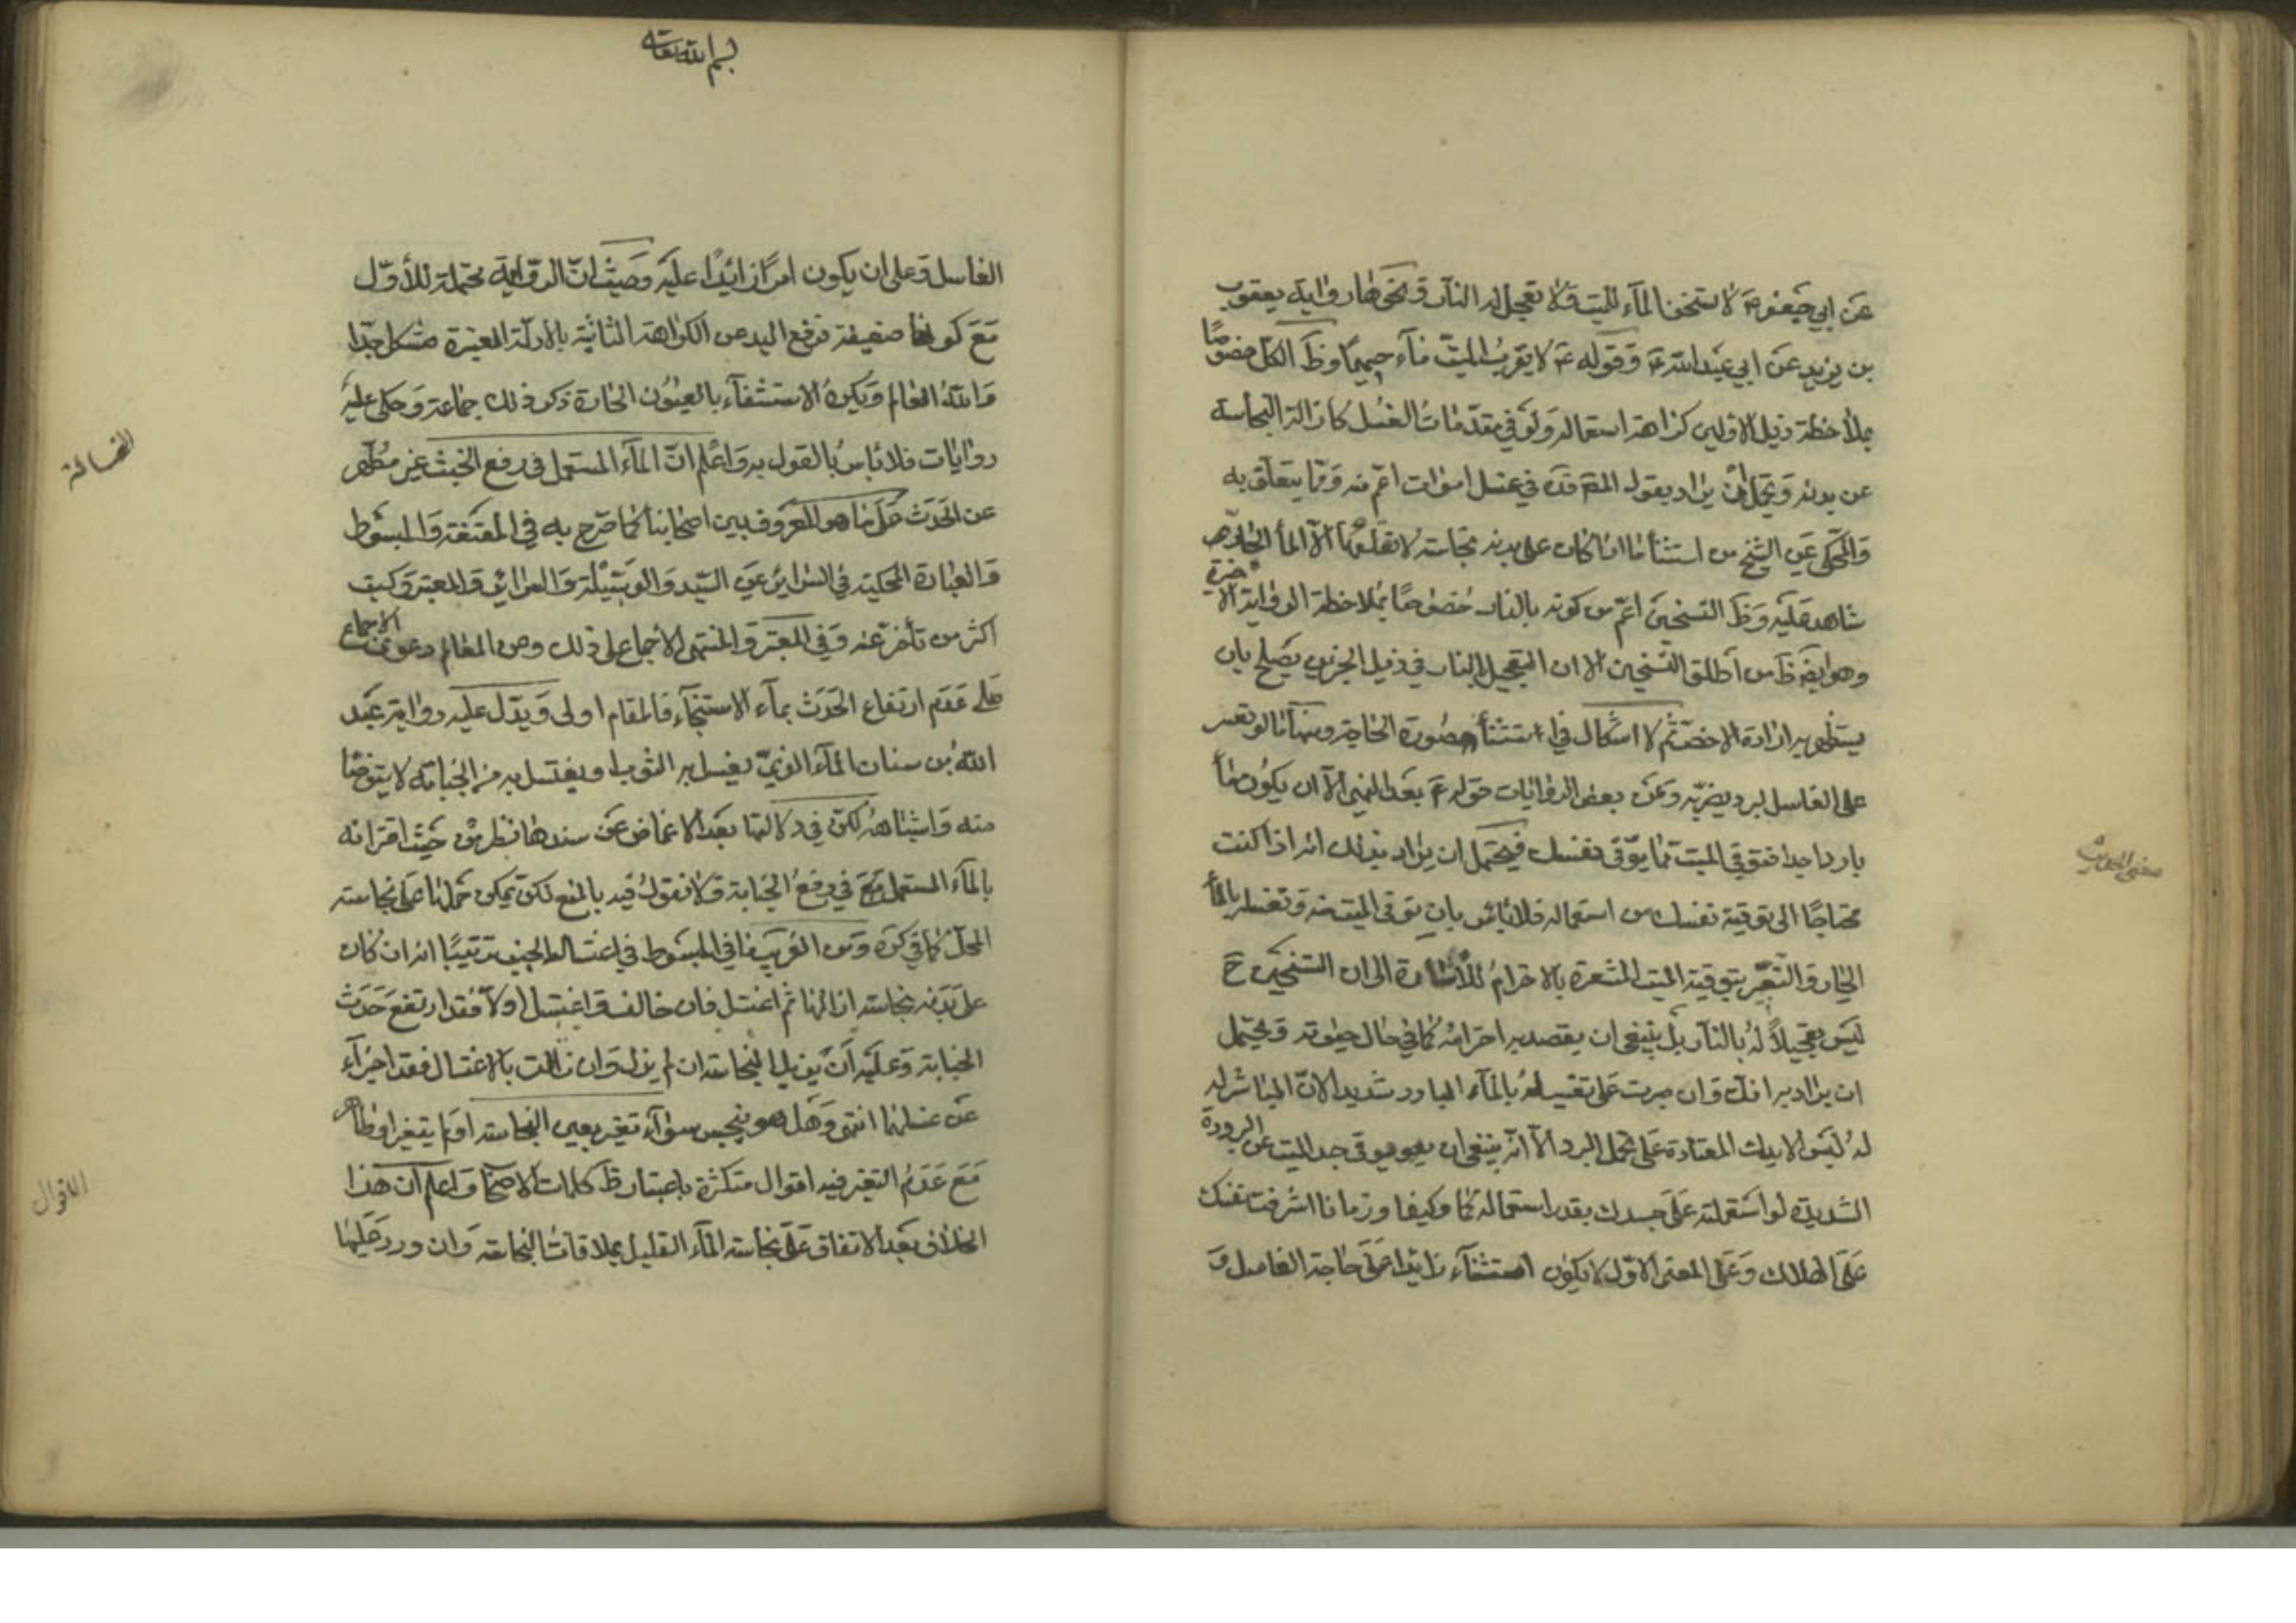 عن ابي جعفر ع لا تسخن الماء للميت ولا تعجل له النار ونحوها رواية يعقوب
بن يزيد عن ابي عبد الله ع وقوله ع لا يقرب الميت ماء حميما وظ الكل خصوصًا
بملاحظة ذيل الاولين كراهة استعماله ولو في مقدمات الغسل كازالة النجاسة
عن بدنه ويحتمل ان يراد بقول المص قده في غسل اموات اعم منه ومما يتعلق به
والمحكي عن الشيخ من استثناء ما اذا كان على بدنه نجاسة لا تقلعها الا الماء الحار
شاهد عليه وظ التسخين اعم من كونه بالنار خصوصا بملاحظة الرواية الاخيرة
وهو ايض ظ من اطلق التسخين الا ان التعجيل بالنار في ذيل الخبرين يصلح بان
يستظهر به ارادة الاخص ثم لا اشكال في استثناء صورة الحاجة ومنها ما لو تعسر
على الغاسل لبرد يضر به وعن بعض الروايات قوله ع بعد النهي الا ان يكون ماء
باردا جدا فتوقي الميت مما توقي نفسك فيحتمل ان يراد بذلك انه اذا كنت
محتاجا الى توقية نفسك من استعماله فلا باس بان توقي الميت منه وتغسله بالماء
الحار والتعبير بتوقية الميت المشعرة بالاحترام للاشارة الى ان التسخين ح
ليس تعجيلا له بالنار بل ينبغي ان يقصد به احترامه كما في حال حيوته ويحتمل
ان يراد به انك وان صبرت على تغسيله بالماء البارد شديدا لان المباشر له
له ليس الا يديك المعتادة على تحمل البرد الا انه ينبغي ان يوقى جسد الميت عن البرودة
الشديدة لو استعملته على جسدك بقدر استعماله كما وكيفا وزمانا اشرفت نفسك
على الهلاك وعلى المعنى الاول لا يكون استثناء زائدا على حاجة الغاسل و
معنى الحديث
بسم الله تعالى
الغاسل وعلى ان يكون امرا زائدا عليه وحيث ان الرواية محتملة للأول
مع كونها ضعيفة فرفع اليد عن الكراهة الثانية بالادلة المعتبرة مشكل جدا
والله العالم ويكره الاستشفاء بالعيون الحارة ذكر ذلك جماعة وحكى عليه
روايات فلا باس بالقول به واعلم ان الماء المستعمل في رفع الخبث غير مطهر
عن الحدث على ما هو المعروف بين اصحابنا كما صرح به في المقنعة والمبسوط
والعبارة المحكية في السرائر عن السيد والوسيلة والسرائر والمعتبر وكتب
اكثر من تأخر عنه وفي المعتبر والمنتهى الاجماع على ذلك وعن المعالم دعوى الاجماع
على عدم ارتفاع الحدث بماء الاستنجاء فالمقام اولى ويدل عليه رواية عبد
الله بن سنان الماء الذي يغسل به الثوب او يغتسل به من الجنابة لا يتوضا
منه واشباهه لكن في دلالتها بعد الاغماض عن سندها نظر من حيث اقترانه
بالماء المستعمل في رفع الجنابة ولا نقول فيه بالمنع لكن يمكن حملها على نجاسة
المحل كما في كره ومن الغريب ما في المبسوط في اغتسال الجنب ترتيبا انه ان كان
على بدنه نجاسة ازالها ثم اغتسل فان خالف واغتسل اولا فقد ارتفع حدث
الجنابة وعليه ان يزيل النجاسة ان لم يزل وان زالت بالاغتسال فقد اجزاء
عن غسلها انتهى وهل هو ينجس سواء تغير بعين النجاسة او لم يتغير او طاهر
مع عدم التغير فيه اقوال متكثرة باعتبار ظ كلمات الاصحاب واعلم ان هذا
الخلاف بعد الاتفاق على نجاسة الماء القليل بملاقات النجاسة وان ورد عليها
الغسالة
الاقوال